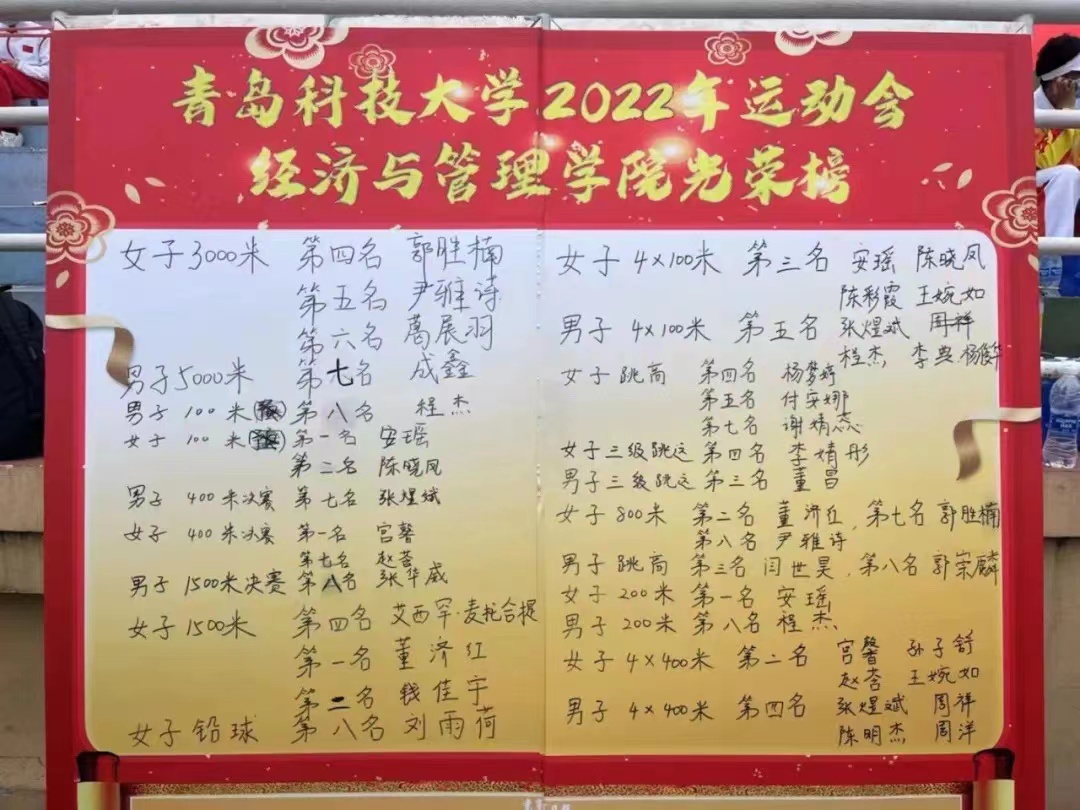 青岛科技大学2022年运动会
经济与管理学院光荣榜
女子3000米 第四名 郭胜楠
第五名 尹雅诗
第六名 葛展羽
男子5000米 第七名 成鑫
男子 100米 第八名 程杰
女子 100米 第一名 安瑶
第二名 陈晓凤
男子 400米决赛 第七名 张煜斌
女子 400米决赛 第一名 宫馨
第七名 赵荟
男子1500米决赛 第八名 张华威
女子1500米 第四名 艾西罕·麦托合提
第一名 董济红
第二名 钱佳宇
女子铅球 第八名 刘雨荷
女子 4×100米 第三名 安瑶 陈晓凤
陈彩霞 王婉如
男子 4×100米 第五名 张煜斌 周祥
程杰 李典 杨
女子跳高 第四名 杨梦婷
第五名 付安娜
第七名 谢精蕊
女子三级跳远 第四名 李婧彤
男子三级跳远 第三名 董昌
女子800米 第二名 董济红, 第七名 郭胜楠
第八名 尹雅诗
男子跳高 第三名 闫世昊, 第八名 郭崇麟
女子200米 第一名 安瑶
男子200米 第八名 程杰
女子 4×400米 第二名 宫馨 孙子舒
赵荟 王婉如
男子 4×400米 第四名 张煜斌 周祥
陈明杰 周洋